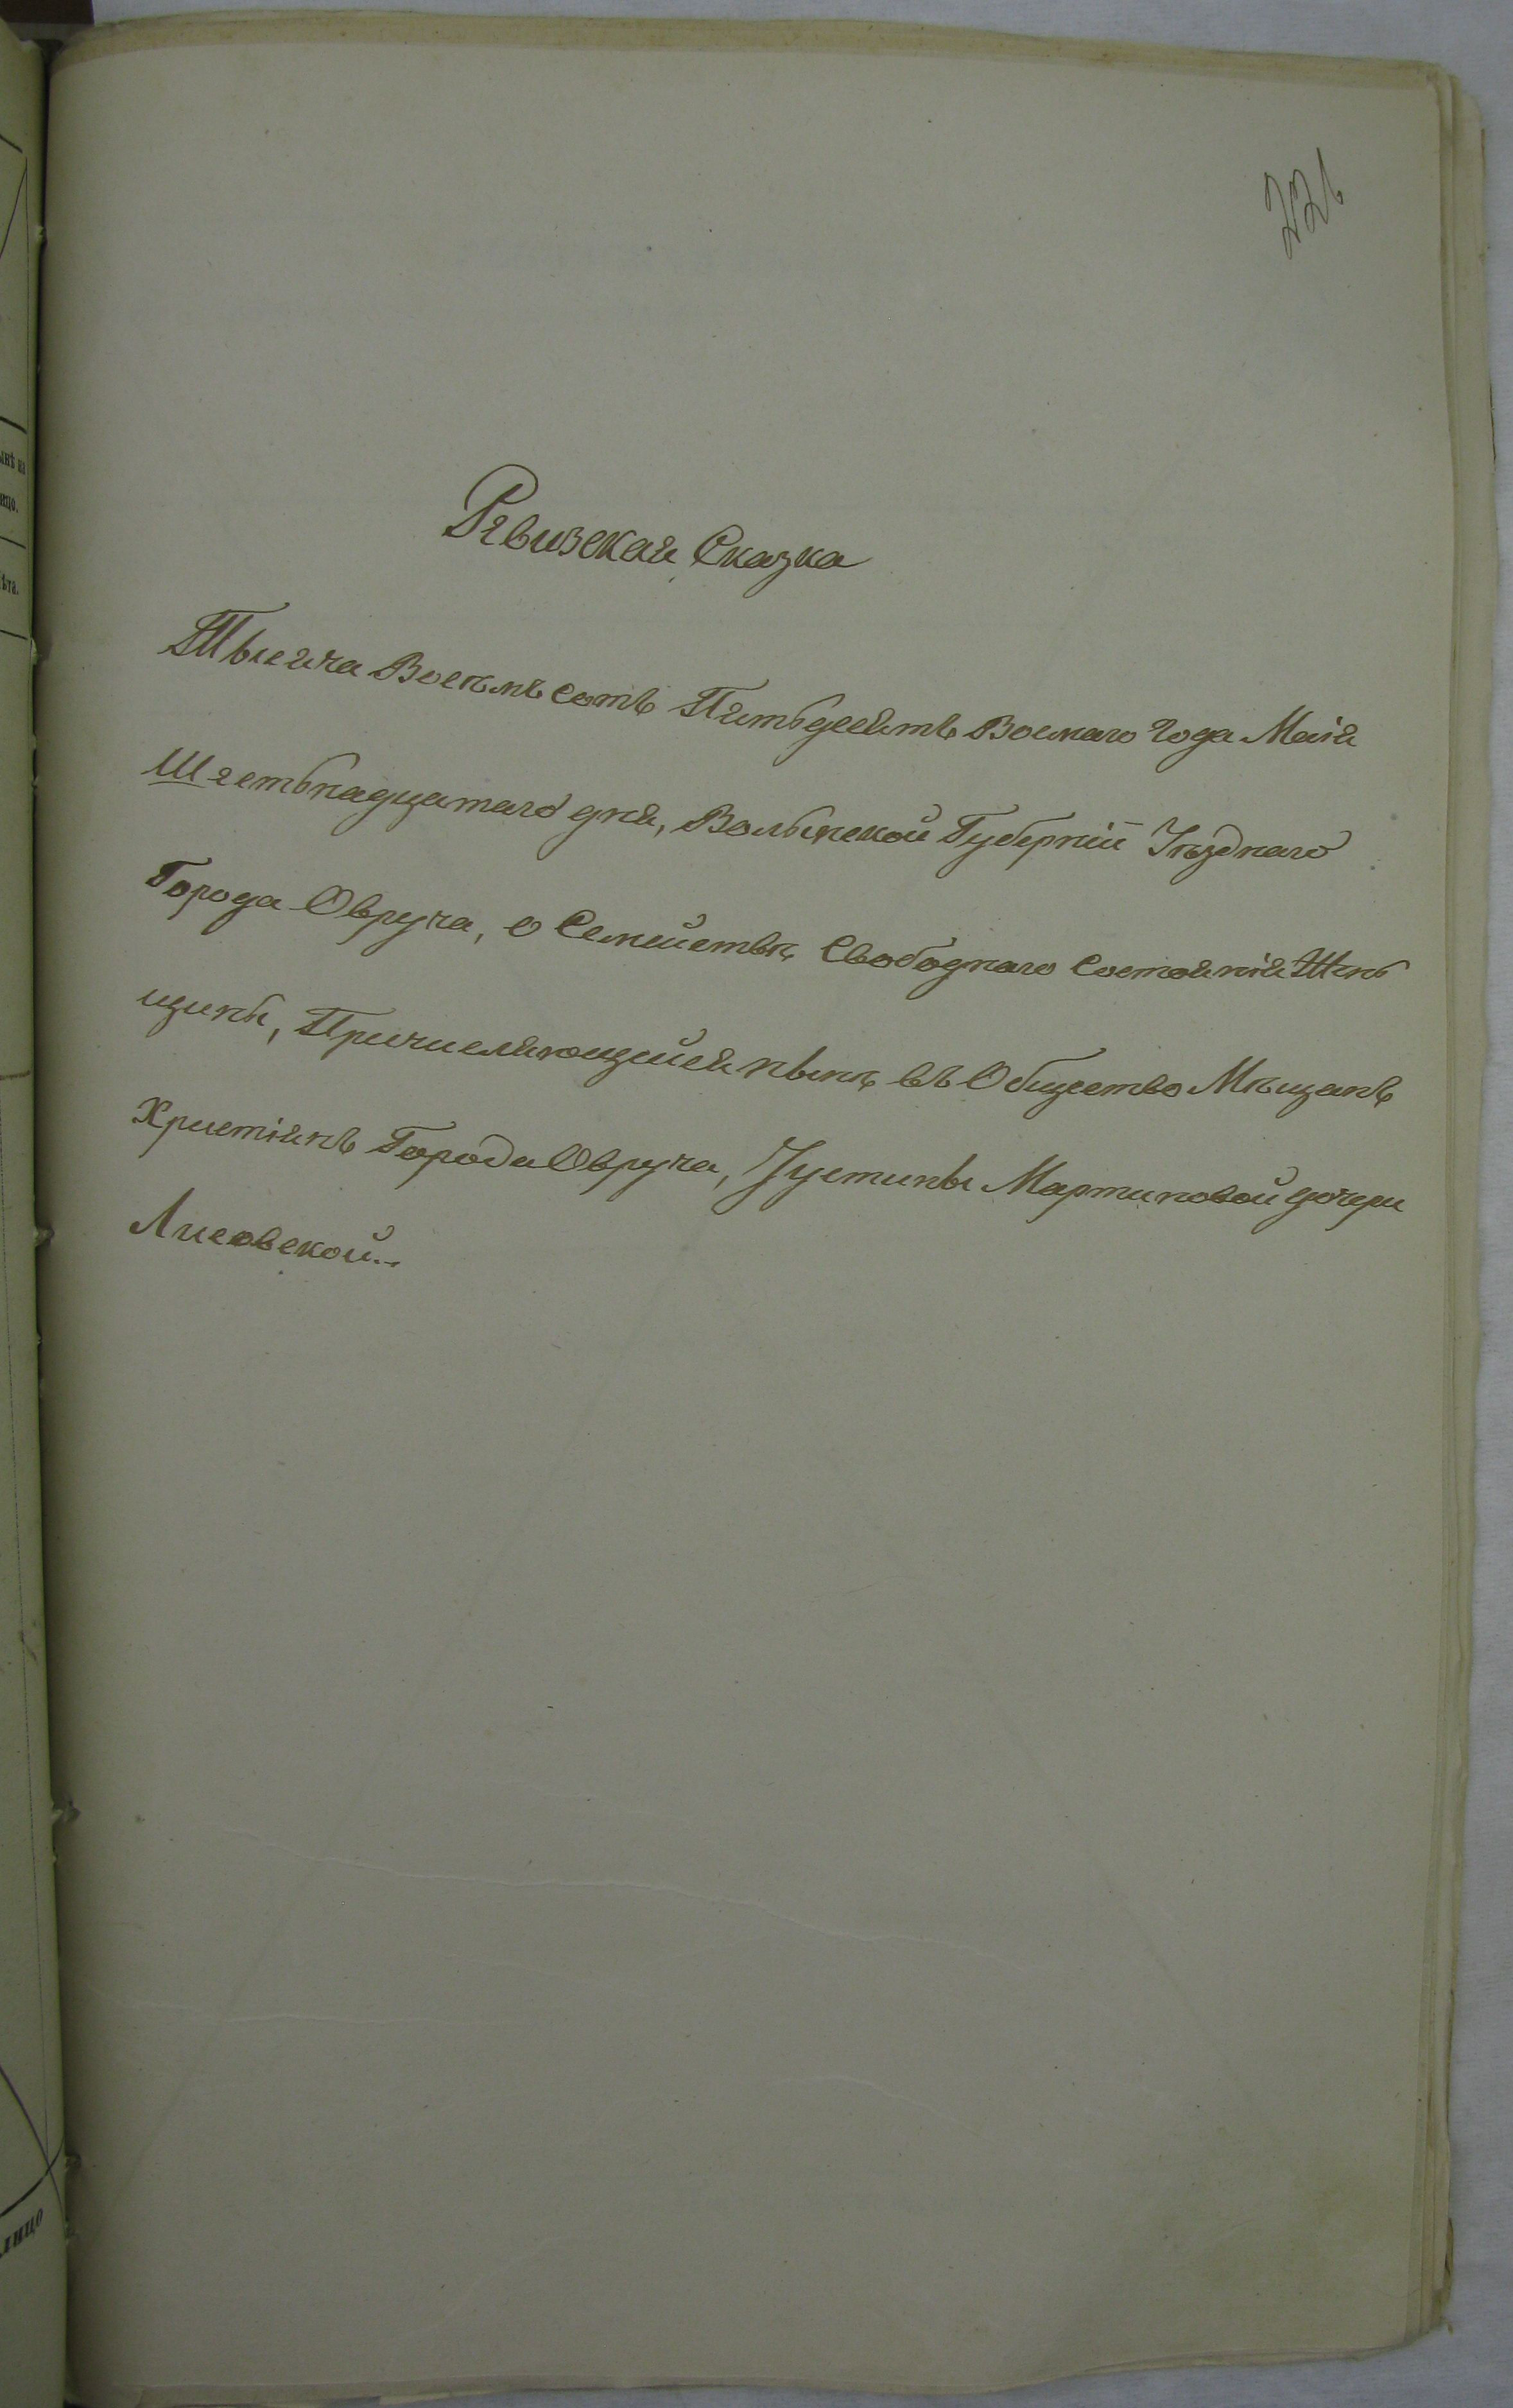 Ревизская Сказка
Тысяча Восемь сотъ Пятьдесятъ Восмаго Года Маія
Шестьнадцатаго дня, Волынской Губерніи Уѣзднаго
Города Овруча, о Семействѣ Свободнаго Состоянія Жен
щины, Причисляющейся нынѣ въ Общество Мѣщанъ
Христіянъ Города Овруча, Іустины Мартиновой дочери
Лисовской..